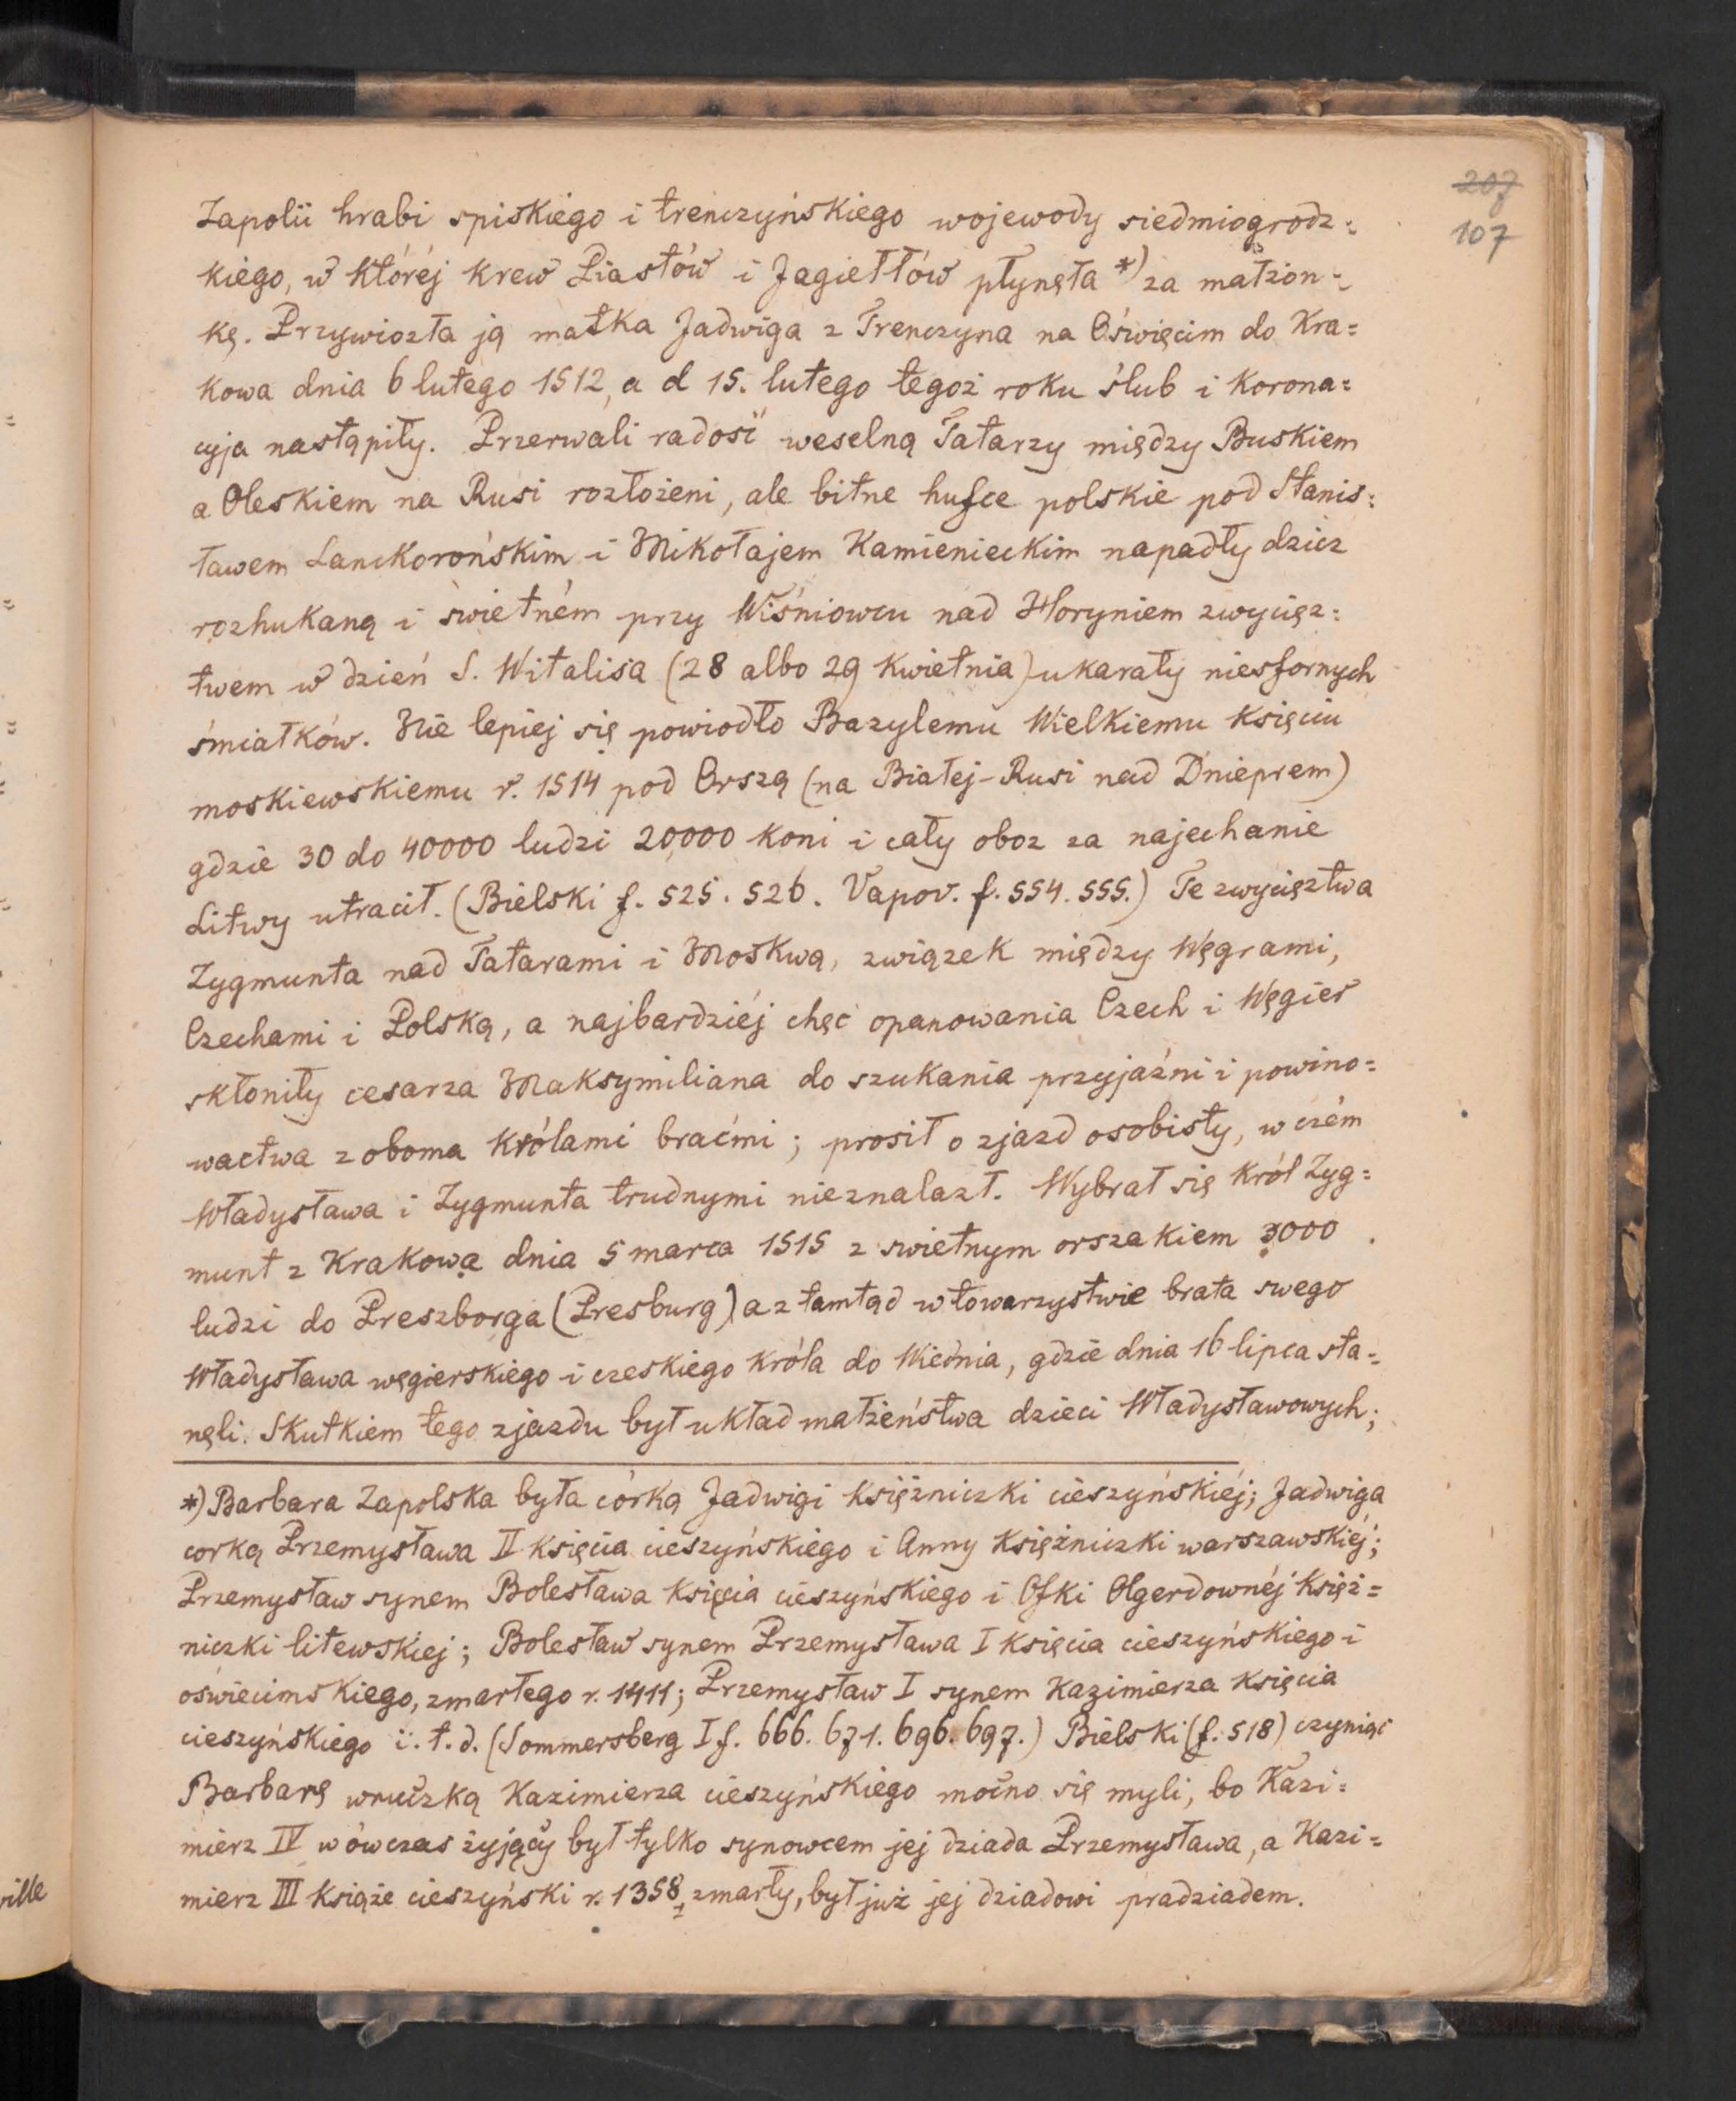 207
107
Zapolii hrabi spiskiego i trenczyńskiego wojewody siedmiogrodz=
kiego, w któréj krew Piastów i Jagiełłów płynęła *) za małżon=
kę. Przywiozła ją matka Jadwiga z Trenczyna na Oświęcim do Kra=
kowa dnia 6 lutego 1512, a d 15. lutego tegoż roku ślub i korona=
cyja nastąpiły. Przerwali radość weselną Tatarzy między Buskiem
a Oleskiem na Rusi rozłożeni, ale bitne hufce polskie pod Stanis=
ławem Lanckorońskim i Mikołajem Kamienieckim napadły dzicz
rozhukaną i świetném przy Wiśniowcu nad Horyniem zwycięz=
twem w dzień S. Witalisa (28 albo 29 kwietnia) ukarały niesfornych
śmiałków. Nie lepiej się powiodło Bazylemu Wielkiemu księciu
moskiewskiemu r. 1514 pod Orszą (na Białej-Rusi nad Dnieprem)
gdzie 30 do 40000 ludzi 20000 koni i cały oboz za najechanie
Litwy utracił. (Bielski f. 525. 526. Vapov. f. 554. 555.) Te zwycięztwa
Zygmunta nad Tatarami i Moskwą, związek między Węgrami,
Czechami i Polską, a najbardziéj chęć opanowania Czech i Węgier
skłoniły cesarza Maksymiliana do szukania przyjaźni i powino=
wactwa z oboma królami braćmi; prosił o zjazd osobisty, w czém
Władysława i Zygmunta trudnymi nieznalazł. Wybrał się król Zyg=
munt z Krakowa dnia 5 marca 1515 z swietnym orszakiem 3000
ludzi do Preszborga (Presburg) a z tamtąd w towarzystwie brata swego
Władysława węgierskiego i czeskiego króla do Wiednia, gdzie dnia 16 lipca sta=
nęli. Skutkiem tego zjazdu był układ małżeństwa dzieci Władysławowych;
*) Barbara Zapolska była córką Jadwigi księżniczki cieszyńskiéj; Jadwiga
corką Przemysława II księcia cieszyńskiego i Anny księżniczki warszawskiéj;
Przemysław synem Bolesława księcia cieszyńskiego i Ofki Olgerdownéj księż=
niczki litewskiej; Bolesław synem Przemysława I księcia cieszyńskiego i
oświecimskiego, zmarłego r. 1411; Przemysław I synem Kazimierza księcia
cieszyńskiego i. t. d. (Sommersberg I f. 666. 671. 696. 697.) Bielski (f. 518) czyniąc
Barbarę wnuczką Kazimierza cieszyńskiego mocno się myli, bo Kazi=
mierz IV wówczas żyjący był tylko synowcem jej dziada Przemysława, a Kazi=
mierz III książe cieszyński r. 1358 zmarły, był już jej dziadowi pradziadem.